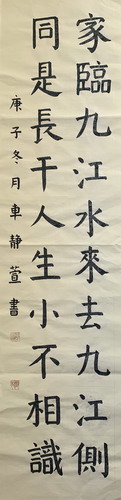 家臨九江水來去九江側
同是長干人生小不相識
庚子冬月車靜萱書